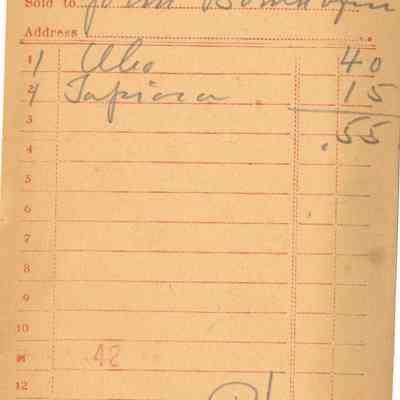 Sold to John
Address
1 1 Oleo 40
2 1 Tapioca 15
3
4 .55
5
6
7
8
9
10
11 48
12